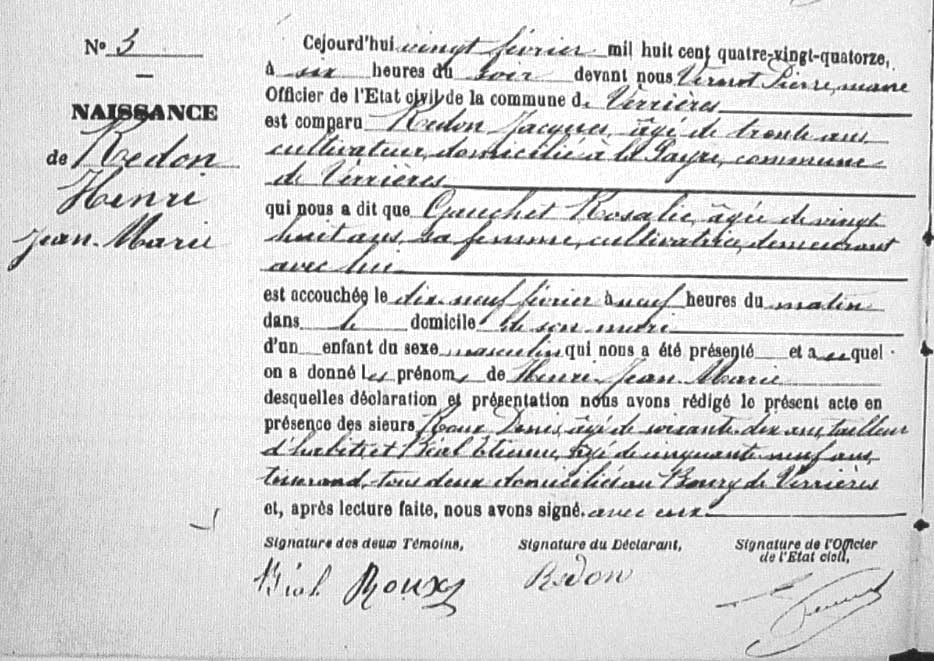 N° 3
NAISSANCE
de Redon
Henri
Jean-Marie
Cejourd'hui vingt février mil huit cent quatre-vingt-quatorze,
à six heures du soir devant nous Vernot Pierre, maire
Officier de l'Etat civil de la commune de Verrières
est comparu Redon Jacques, âgé de trente ans,
cultivateur, domicilié à commune
de Verrières
qui nous a dit que Gauchet Rosalie, âgée de vingt
huit ans, sa femme, cultivatrice, demeurant
avec lui
est accouchée le dix neuf février à neuf heures du matin
dans le domicile de son mari
d'un enfant du sexe masculin qui nous a été présenté et auquel
on a donné les prénoms de Henri Jean-Marie
desquelles déclaration et présentation nous avons rédigé le présent acte en
présence des sieurs Roux Denis, âgé de soixante-dix ans, tailleur
d'habits et Béal Etienne, âgé de cinquante neuf ans,
tisserand, tous deux domiciliés au Bourg de Verrières
et, après lecture faite, nous avons signé. avec eux
Signature des deux Témoins,
Signature du Déclarant,
Signature de l'Officier
de l'Etat civil,
Béal Roux
Redon